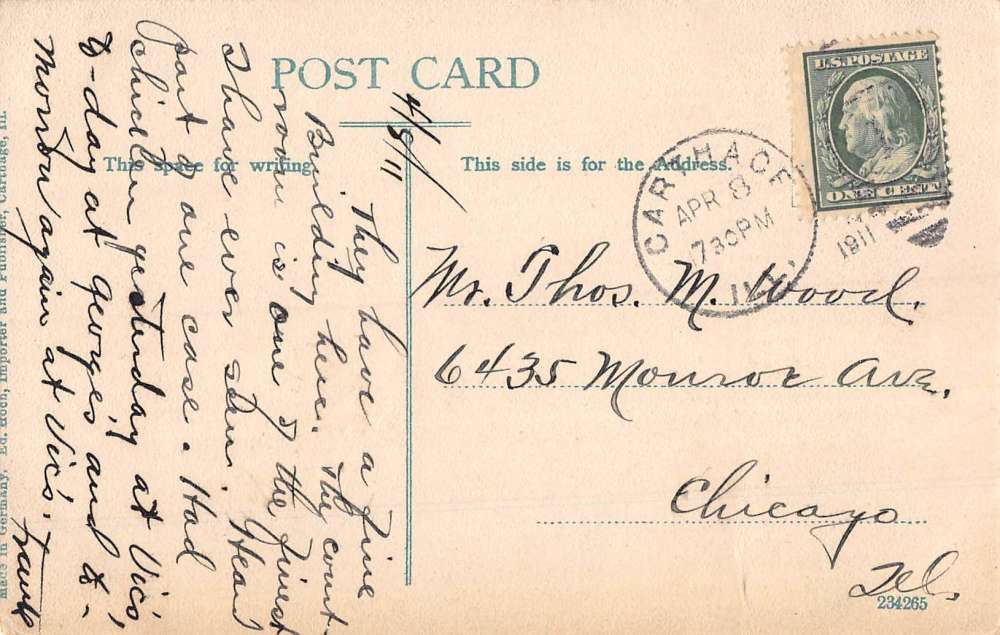 POST CARD
This space for writing.
This side is for the Address.
4/8/11
They have a fine
Building here. The court-
room is one of the finest
I have ever seen. Heard
part of one case. Had
chicken yesterday at Vic's,
to-day at George's and to-
morrow again at Vic's.
Frank
U.S. POSTAGE
ONE CENT
CARTHAGE
APR 8
730 PM
ILL.
1911
Mr. Thos. M. Wood.
6435 Monroe Ave.
Chicago
Ill.
234265
Made in Germany. Ed. Hoch, Importer and Publisher, Carthage, Ill.